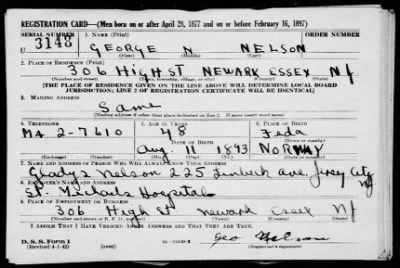 REGISTRATION CARD—(Men born on or after April 28, 1877 and on or before February 16, 1897)
SERIAL NUMBER 1. NAME (Print) ORDER NUMBER
U 3148 GEORGE N NELSON
(First) (Middle) (Last)
2. PLACE OF RESIDENCE (Print)
306 HIGH ST NEWARK ESSEX NJ
(Number and street) (Town, township, village, or city) (County) (State)
[THE PLACE OF RESIDENCE GIVEN ON THE LINE ABOVE WILL DETERMINE LOCAL BOARD
JURISDICTION; LINE 2 OF REGISTRATION CERTIFICATE WILL BE IDENTICAL]
3. MAILING ADDRESS
Same
[Mailing address if other than place indicated on line 2. If same insert word same]
4. TELEPHONE 5. AGE IN YEARS 6. PLACE OF BIRTH
MA 2-7610 48 Feda
DATE OF BIRTH
Aug. 11 1893 NORWAY
(Exchange) (Number) (Mo.) (Day) (Yr.) (State or country)
7. NAME AND ADDRESS OF PERSON WHO WILL ALWAYS KNOW YOUR ADDRESS
Gladys Nelson 225 ave Jersey City NJ
8. EMPLOYER'S NAME AND ADDRESS
St. Michaels Hospital
9. PLACE OF EMPLOYMENT OR BUSINESS
306 High St Newark Essex NJ
(Number and street or R. F. D. number) (Town) (County) (State)
I AFFIRM THAT I HAVE VERIFIED ABOVE ANSWERS AND THAT THEY ARE TRUE.
D. S. S. Form 1
(Revised 4-1-42) (over) Geo Nelson
(Registrant's signature)